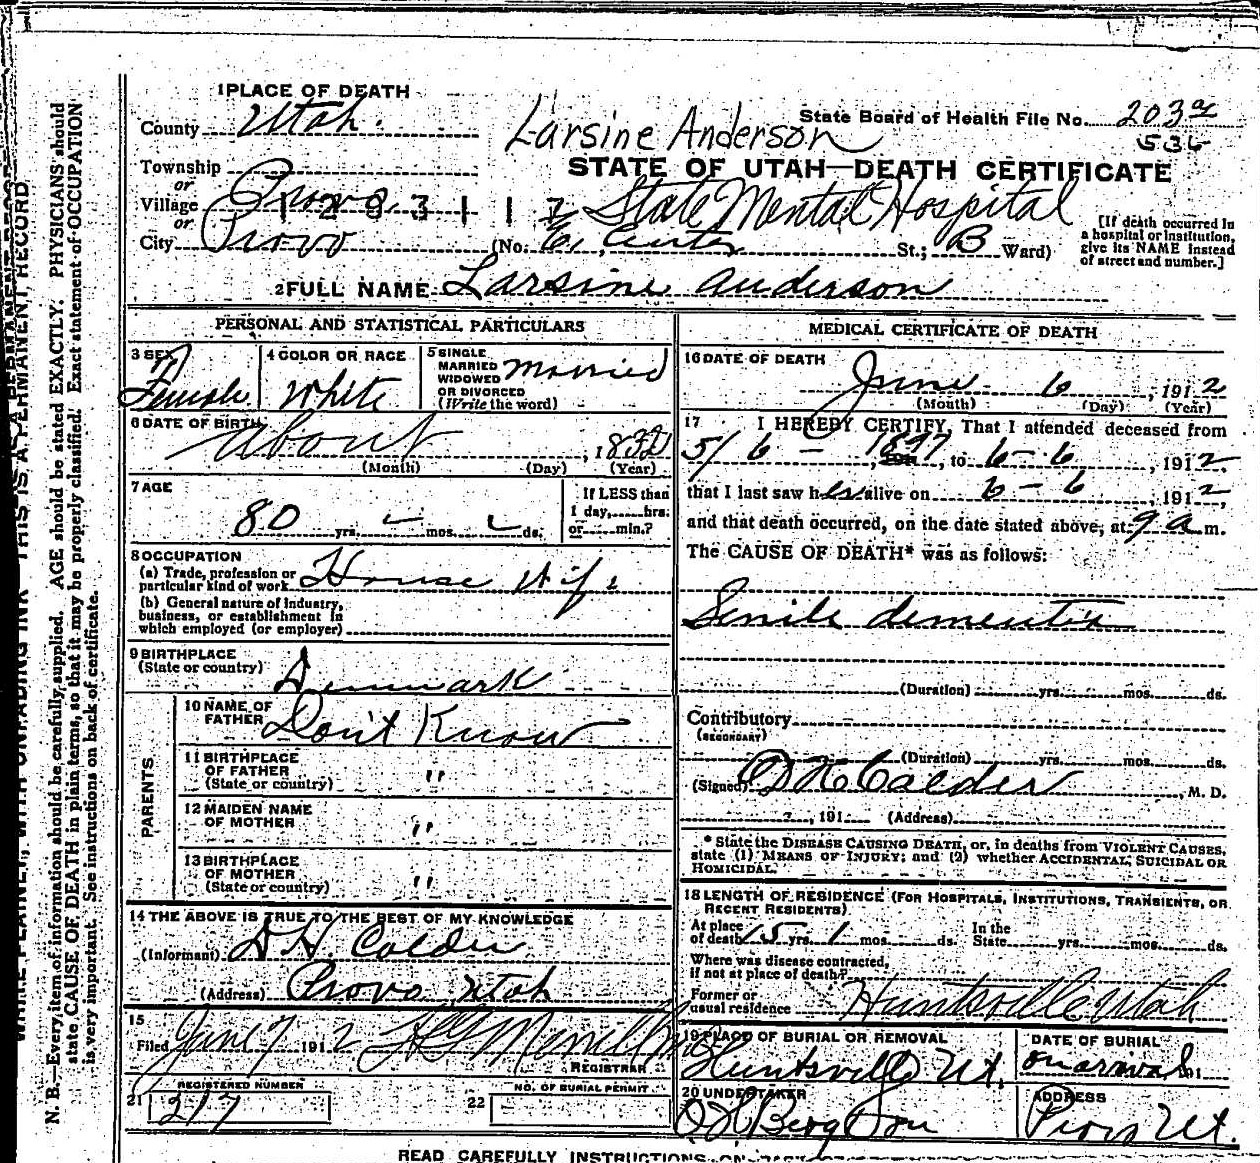 1 PLACE OF DEATH
County Utah.
Larsine Anderson
State Board of Health File No. 203
536
STATE OF UTAH—DEATH CERTIFICATE
Township
or
Village Provo
or
1293117
State Mental Hospital
City Provo (No. E. Center St.; B Ward)
[If death occurred in
a hospital or institution,
give its NAME instead
of street and number.]
2 FULL NAME Larsine Anderson
PERSONAL AND STATISTICAL PARTICULARS
3 SEX Female
4 COLOR OR RACE White
5 SINGLE
MARRIED
WIDOWED
OR DIVORCED
(Write the word) married
6 DATE OF BIRTH about, 1832
(Month) (Day) (Year)
7 AGE
80 yrs. mos. ds.
If LESS than
1 day, hrs.
or min.?
8 OCCUPATION
(a) Trade, profession or
particular kind of work House Wife
(b) General nature of industry,
business, or establishment in
which employed (or employer)
9 BIRTHPLACE
(State or country) Denmark
PARENTS
10 NAME OF
FATHER Don't Know
11 BIRTHPLACE
OF FATHER
(State or country) "
12 MAIDEN NAME
OF MOTHER "
13 BIRTHPLACE
OF MOTHER
(State or country) "
14 THE ABOVE IS TRUE TO THE BEST OF MY KNOWLEDGE
(Informant) D H Calder
(Address) Provo Utah
15
Filed June 7 1912
REGISTRAR
REGISTERED NUMBER
21 217
22 NO. OF BURIAL PERMIT
MEDICAL CERTIFICATE OF DEATH
16 DATE OF DEATH
June 6, 1912
(Month) (Day) (Year)
17 I HEREBY CERTIFY, That I attended deceased from
5/6 - 1897, to 6-6, 1912
that I last saw her alive on 6-6, 1912
and that death occurred, on the date stated above, at 9 a m.
The CAUSE OF DEATH* was as follows:
Senile dementia
(Duration) yrs. mos. ds.
Contributory
(SECONDARY)
(Duration) yrs. mos. ds.
(Signed) D H Calder, M. D.
, 191 (Address)
* State the DISEASE CAUSING DEATH, or, in deaths from VIOLENT CAUSES,
state (1) MEANS OF INJURY; and (2) whether ACCIDENTAL, SUICIDAL OR
HOMICIDAL.
18 LENGTH OF RESIDENCE (FOR HOSPITALS, INSTITUTIONS, TRANSIENTS, OR
RECENT RESIDENTS)
At place
of death 15 yrs. 1 mos. ds. In the
State yrs. mos. ds.
Where was disease contracted,
if not at place of death?
Former or
usual residence Huntsville Utah
19 PLACE OF BURIAL OR REMOVAL
Huntsville Ut.
DATE OF BURIAL
on arrival 191
20 UNDERTAKER
Berg Son
ADDRESS
Provo Ut.
READ CAREFULLY INSTRUCTIONS ON
THIS IS A PERMANENT RECORD
N. B.—Every item of information should be carefully supplied. AGE should be stated EXACTLY. PHYSICIANS should
state CAUSE OF DEATH in plain terms, so that it may be properly classified. Exact statement of OCCUPATION
is very important. See instructions on back of certificate.